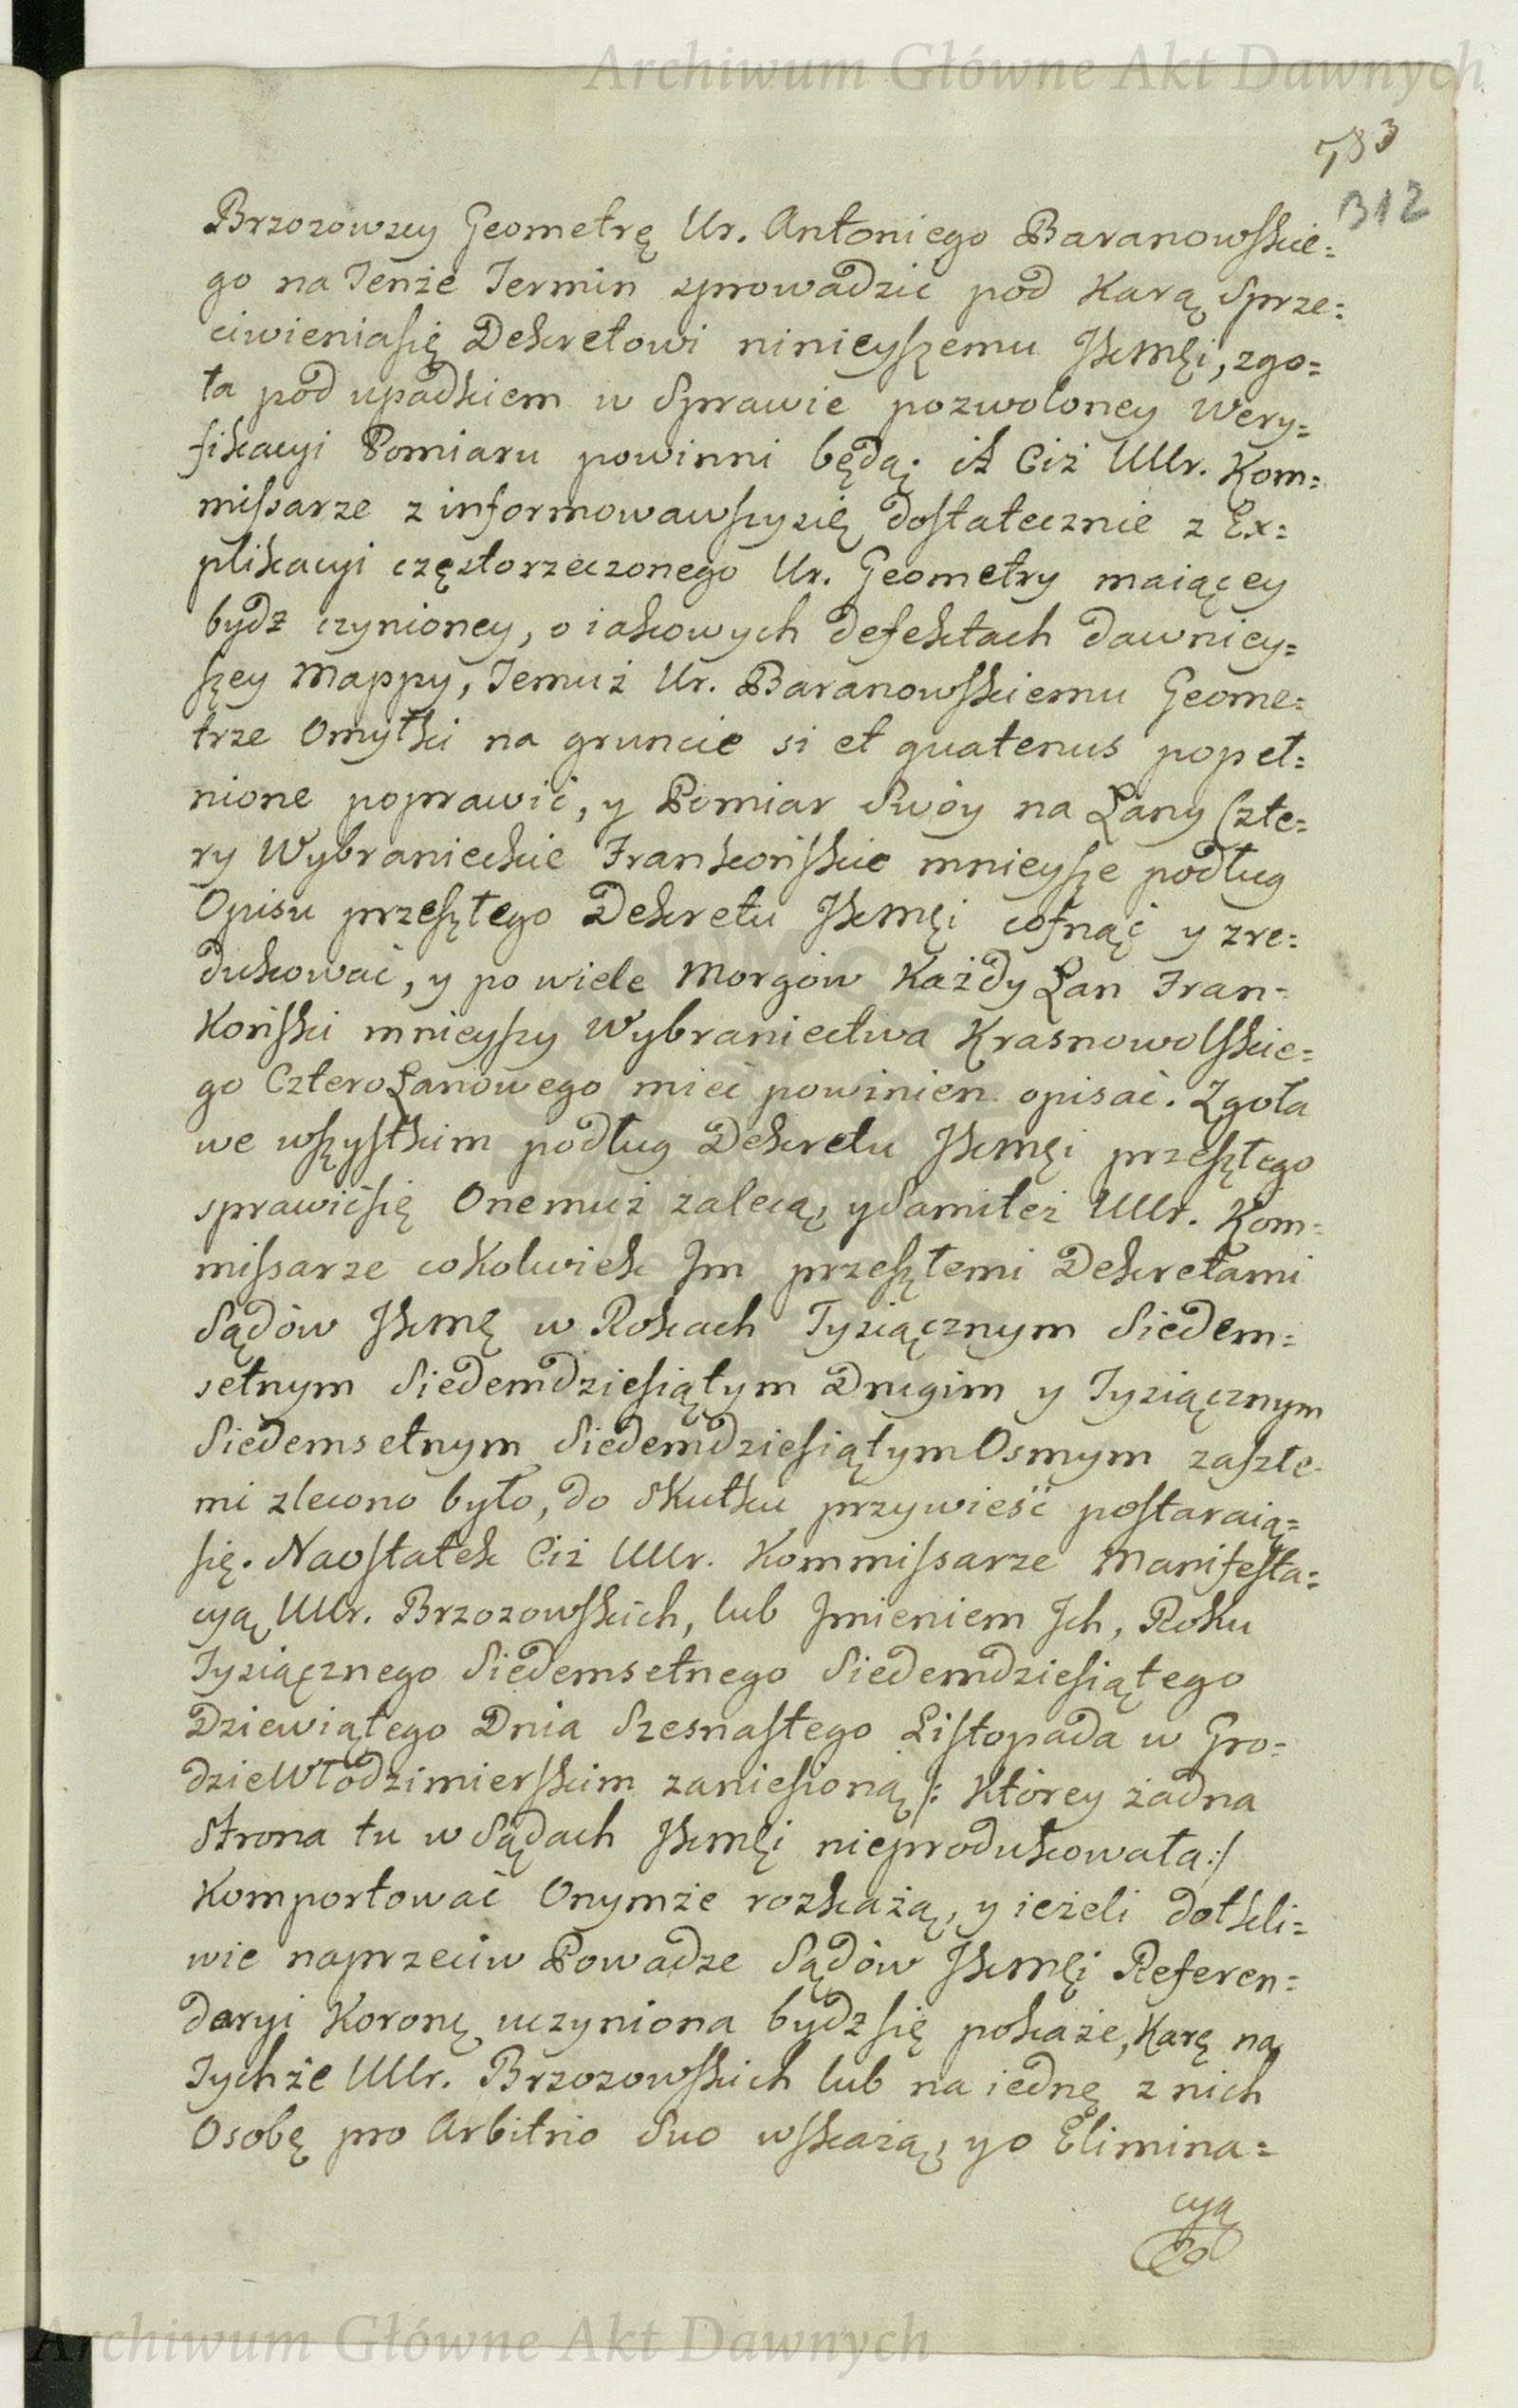 Archiwum Główne Akt Dawnych
583
312
Brzozowscy Geometrę Ur. Antoniego Baranowskie=
go na Tenże Termin zprowadzić pod Karą Sprze=
ciwieniasię Dekretowi ninieyszemu JKMCi, zgo=
ła pod upadkiem w Sprawie pozwoloney Wery=
fikacyi Pomiaru powinni będą. A Ciż UUr. Kom=
missarze zinformowawszysię dostatecznie z Ex=
plikacyi częstorzeczonego Ur. Geometry maiącey
bydź czynioney, o iakowych defektach dawniey=
szey Mappy, Temuż Ur. Baranowskiemu Geome=
trze Omyłki na gruncie si et quatenus popeł=
nione poprawić, y Pomiar Swóy na Łany Czte=
ry Wybranieckie Frankońskie mnieysze podług
Opisu przeszłego Dekretu JKMCi cofnąć y zre=
dukować, y po wiele Morgów Każdy Łan Fran=
Koński mnieyszy Wybraniectwa Krasnowolskie=
go CzteroŁanowego mieć powinien opisać. Zgoła
we wszystkim podług Dekretu JKMCi przeszłego
sprawićsię Onemuż zalecą, ySamiteż UUr. Kom=
missarze cokolwiek Im przeszłemi Dekretami
Sądów JKMC w Rokach Tysiącznym Siedem=
setnym Siedemdziesiątym Drugim y Tysiącznym
Siedemsetnym SiedemdziesiątymOsmym zaszłe
mi zlecono było, do Skutku przywieść postaraią=
się. Naostatek Ciż UUr. Kommissarze Manifesta=
cyą UUr. Brzozowskich, lub Imieniem Ich, Roku
Tysiącznego Siedemsetnego Siedemdziesiątego
Dziewiątego Dnia Szesnastego Listopada w Gro=
dzieWłodzimierskim zaniesioną /: Którey żadna
Strona tu w Sądach JKMCi nieprodukowała :/
Komportować Onymże rozkażą, y ieżeli dotkli=
wie naprzeciw Powadze Sądów JKMCi Referen=
daryi Koronę uczyniona bydź się pokaże, Karę na
Tychże UUr. Brzozowskich lub na iednę z nich
Osobę pro Arbitrio Suo wskażą, y o Elimina=
cyą
Archiwum Główne Akt Dawnych